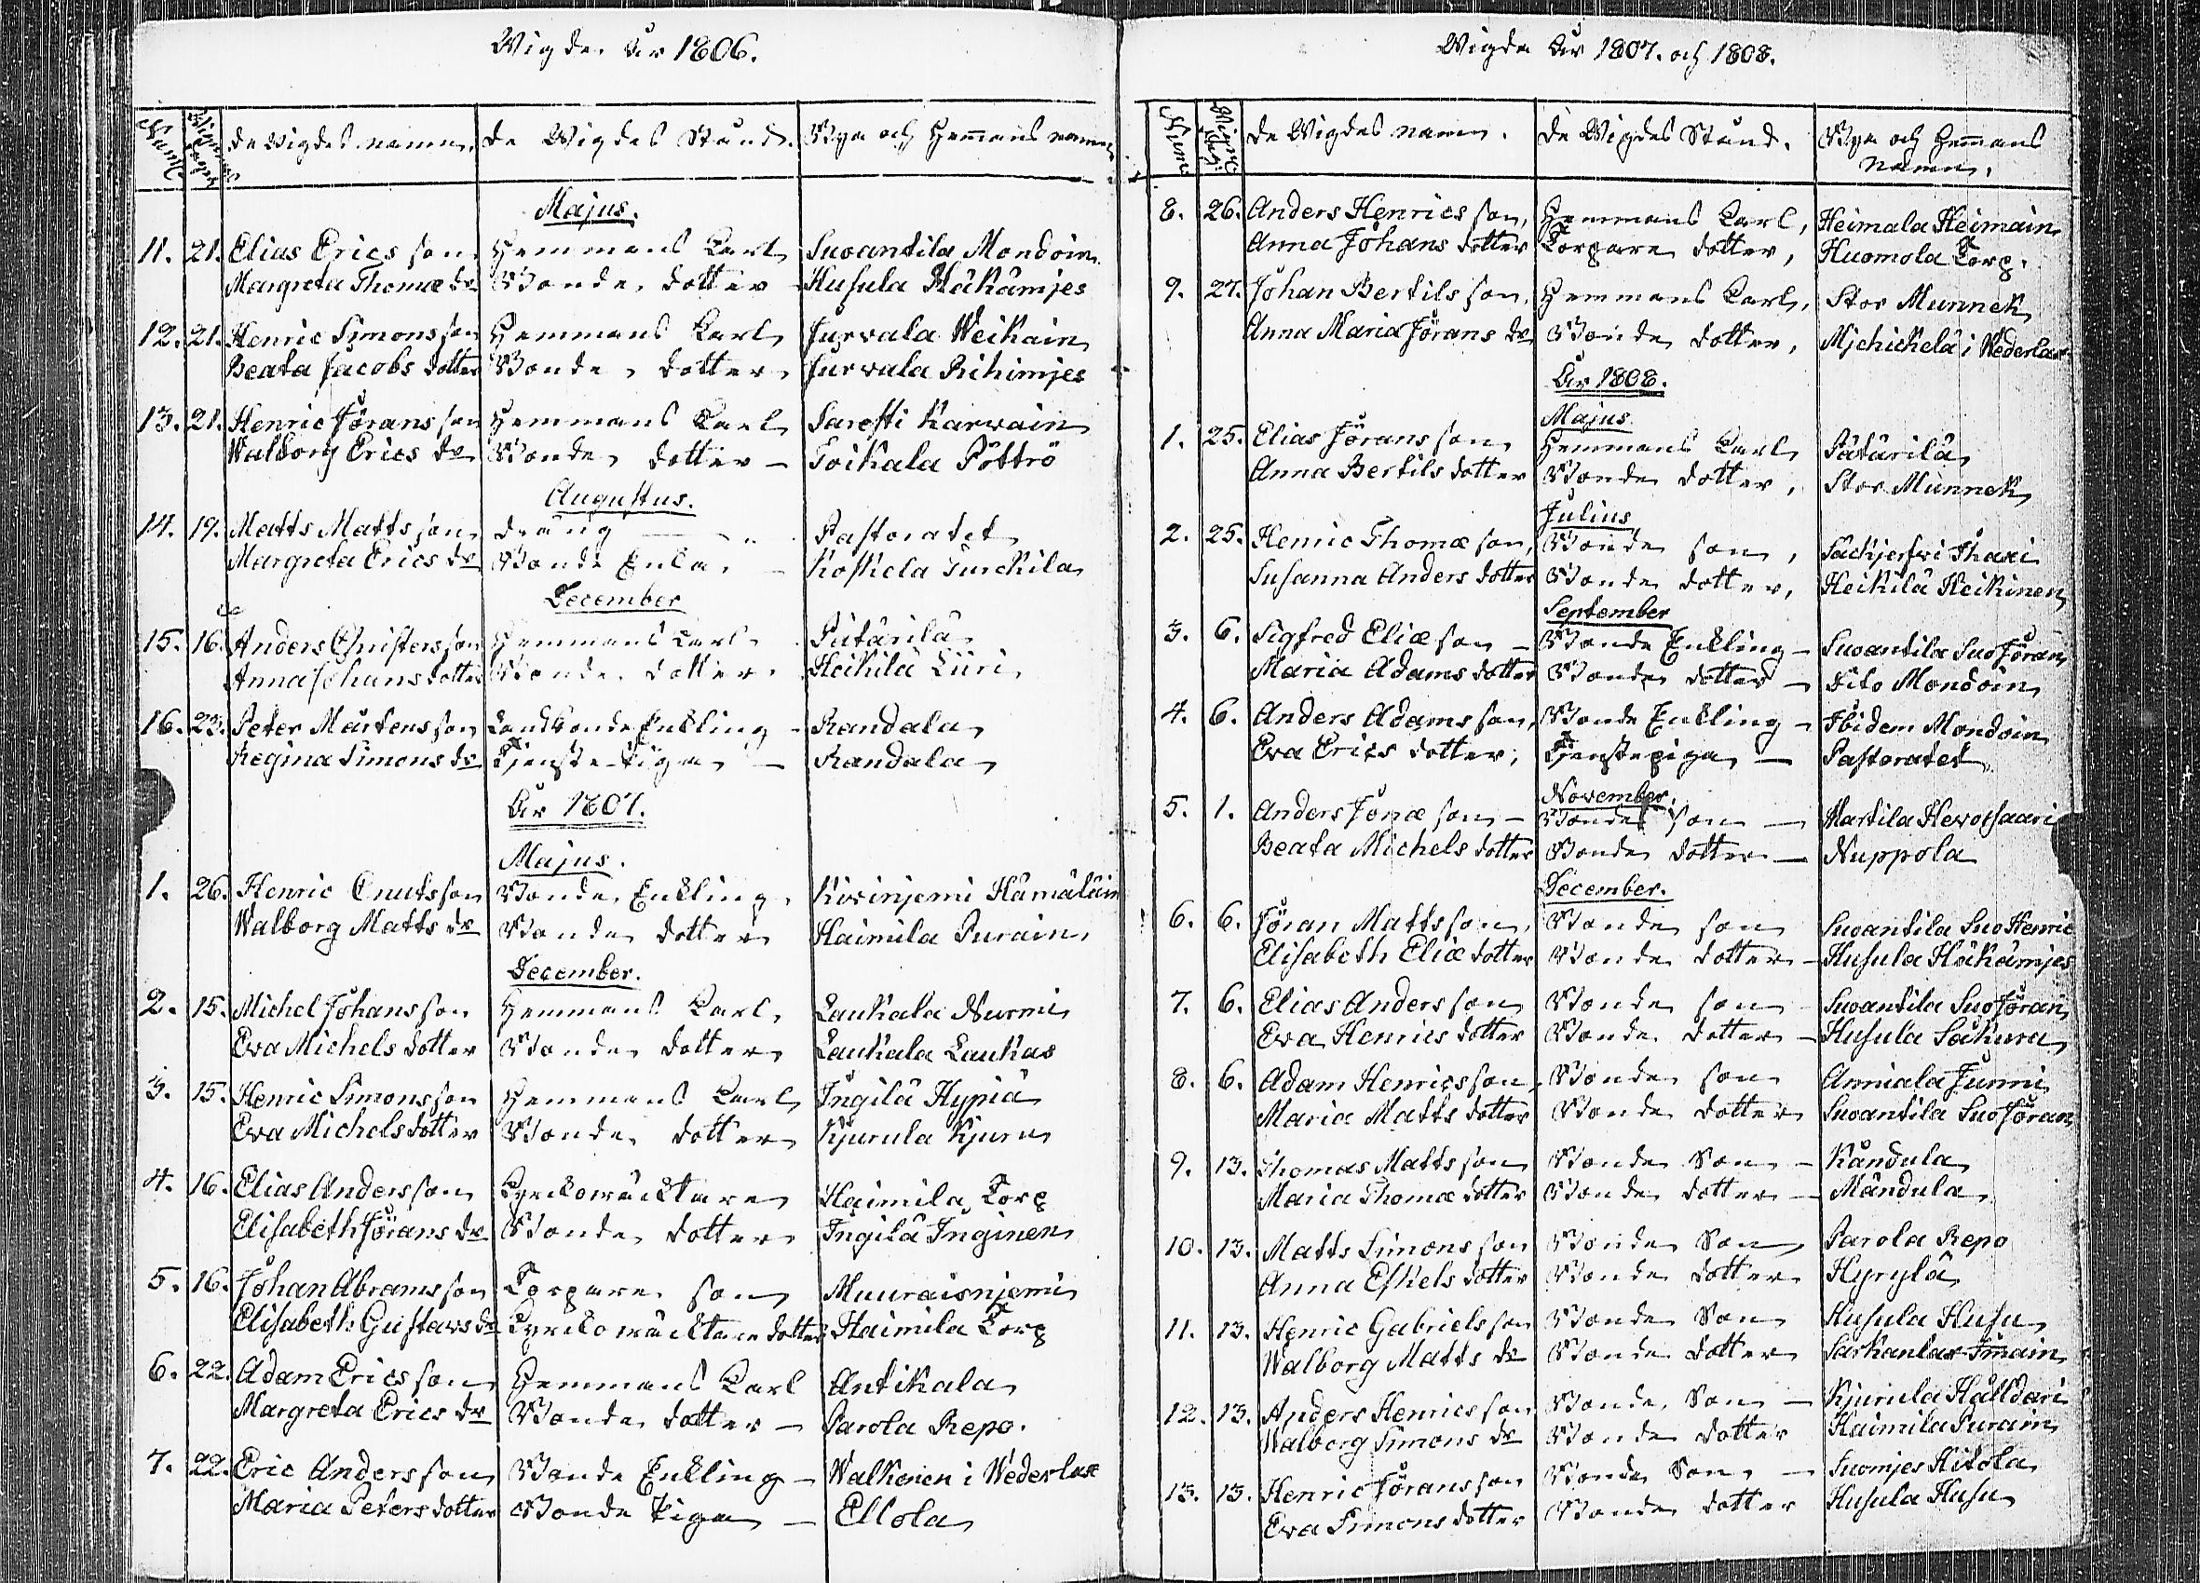 Wigde År 1806.
Num: Wignings dagar De Wigdes namn. De Wigdes Stånd. Bya och Hemans namn
Majus.
11. 21. Elias Erics son Hemmans Karl Suoantila Mondoin
Margreta Thomæ dr Bonde dotter Husula Häkämjes
12. 21. Henric Simons son Hemmans Karl Jurvala Weikain
Beata Jacobs dotter Bonde dotter Jurvala Rihimjes
13. 21. Henric Jörans son Hemmans Karl Saresti Karvain
Walborg Erics dr Bonde dotter – Toikala Pöttrö
Augustus.
14. 19. Matts Matts son dräng Pastoratet
Margreta Erics dr Bonde Enka – Koskela Turckila
December
15. 16. Anders Christers son Hemmans Karl Pätärilä
Anna Johans dotter Bonde dotter Heikilä Liiri
16. 23. Peter Mårtens son Landbonde Enkling – Randala
Regina Simons dr Tjenste Piga – Randala
År 1807.
Majus.
1. 26. Henric Cnuts son Bonde Enkling Kivinjemi Hämäläin
Walborg Matts dr Bonde dotter Haimila Purain
December.
2. 15. Michel Johans son Hemmans Karl Laukala Nurmi
Eva Michels dotter Bonde dotter Laukala Laukas
3. 15. Henric Simons son Hemmans Karl Ingilä Hypiä
Eva Michels dotter Bonde dotter Kjurula Kjuru
4. 16. Elias Anders son Kyrkowäktare Haimila Torp
Elisabeth Jörans dr Bonde dotter Ingilä Inginen
5. 16. Johan Abrams son Torpare son Muuraisnjemi
Elisabeth Gustavs dr Kyrkowäktare dotter Haimila Torp
6. 22. Adam Erics son Hemmans Karl Antikala
Margreta Erics dr Bonde dotter – Parola Repo.
7. 22. Eric Anders son Bonde Enkling – Walkenen i Wederlax
Maria Peters dotter Bonde Piga – Ellola
Wigda År 1807. och 1808.
Num: De Wigdes namn. De Wigdes Stånd. Bya och Hemans
namn.
8. 26. Anders Henrics son, Hemmans Karl, Heimala Heimain
Anna Johans dotter Torpare dotter, Huomola Torp.
9. 27. Johan Bertils son, Hemmans Karl, Stor Munnek
Anna Maria Jörans dr Bonde dotter, Mjchickelä i Wederlax
År 1808.
Majus
1. 25. Elias Jörans son Hemmans Karl Pätärilä
Anna Bertils dotter Bonde dotter, Stor Munnek
Julius
2. 25. Henric Thomæ son, Bonde son, Säckjerfvi Ihaxi
Susanna Anders dotter Bonde dotter, Heikilä Heikinen
September
3. 6. Sigfred Eliæ son – Bonde Enkling – Suoantila Suo Jöran
Maria Adams dotter Bonde dotter – Dito Mondoin
4. 6. Anders Adams son, Bonde Enkling – Ibidem Mondoin
Eva Erics dotter, Tjenstepiga – Pastoratet
November
5. 1. Anders Jonæ son – Bonde son – Martila Hevosaari
Beata Michels dotter Bonde dotter – Nuppola
December.
6. 6. Jöran Matts son, Bonde son Suoantila Suo Henric
Elisabeth Eliæ dotter Bonde dotter – Husula Häkämjes
7. 6. Elias Anders son Bonde son Suoantila Suo Jöran
Eva Henrics dotter Bonde dotter – Husula Säkura
8. 6. Adam Henrics son Bonde son Anniala Junni
Maria Matts dotter Bonde dotter Suoantila Suo Jöran
9. 13. Thomas Matts son Bonde Son – Kändula
Maria Thomæ dotter Bonde dotter – Mändula
10. 13. Matts Simons son Bonde Son Parola Repo
Anna Eskels dotter Bonde dotter Hyrylä
11. 13. Henric Gabriels son Bonde Son Husula Husu
Walborg Matts dr Bonde dotter Särkanlax Imain
12. 13. Anders Henrics son Bonde Son – Kjurula Hälldari
Walborg Simons dr Bonde dotter Haimila Purain
13. 13. Henric Jörans son Bonde Son – Suomjes Hitola
Eva Simons dotter Bonde dotter Husula Husu